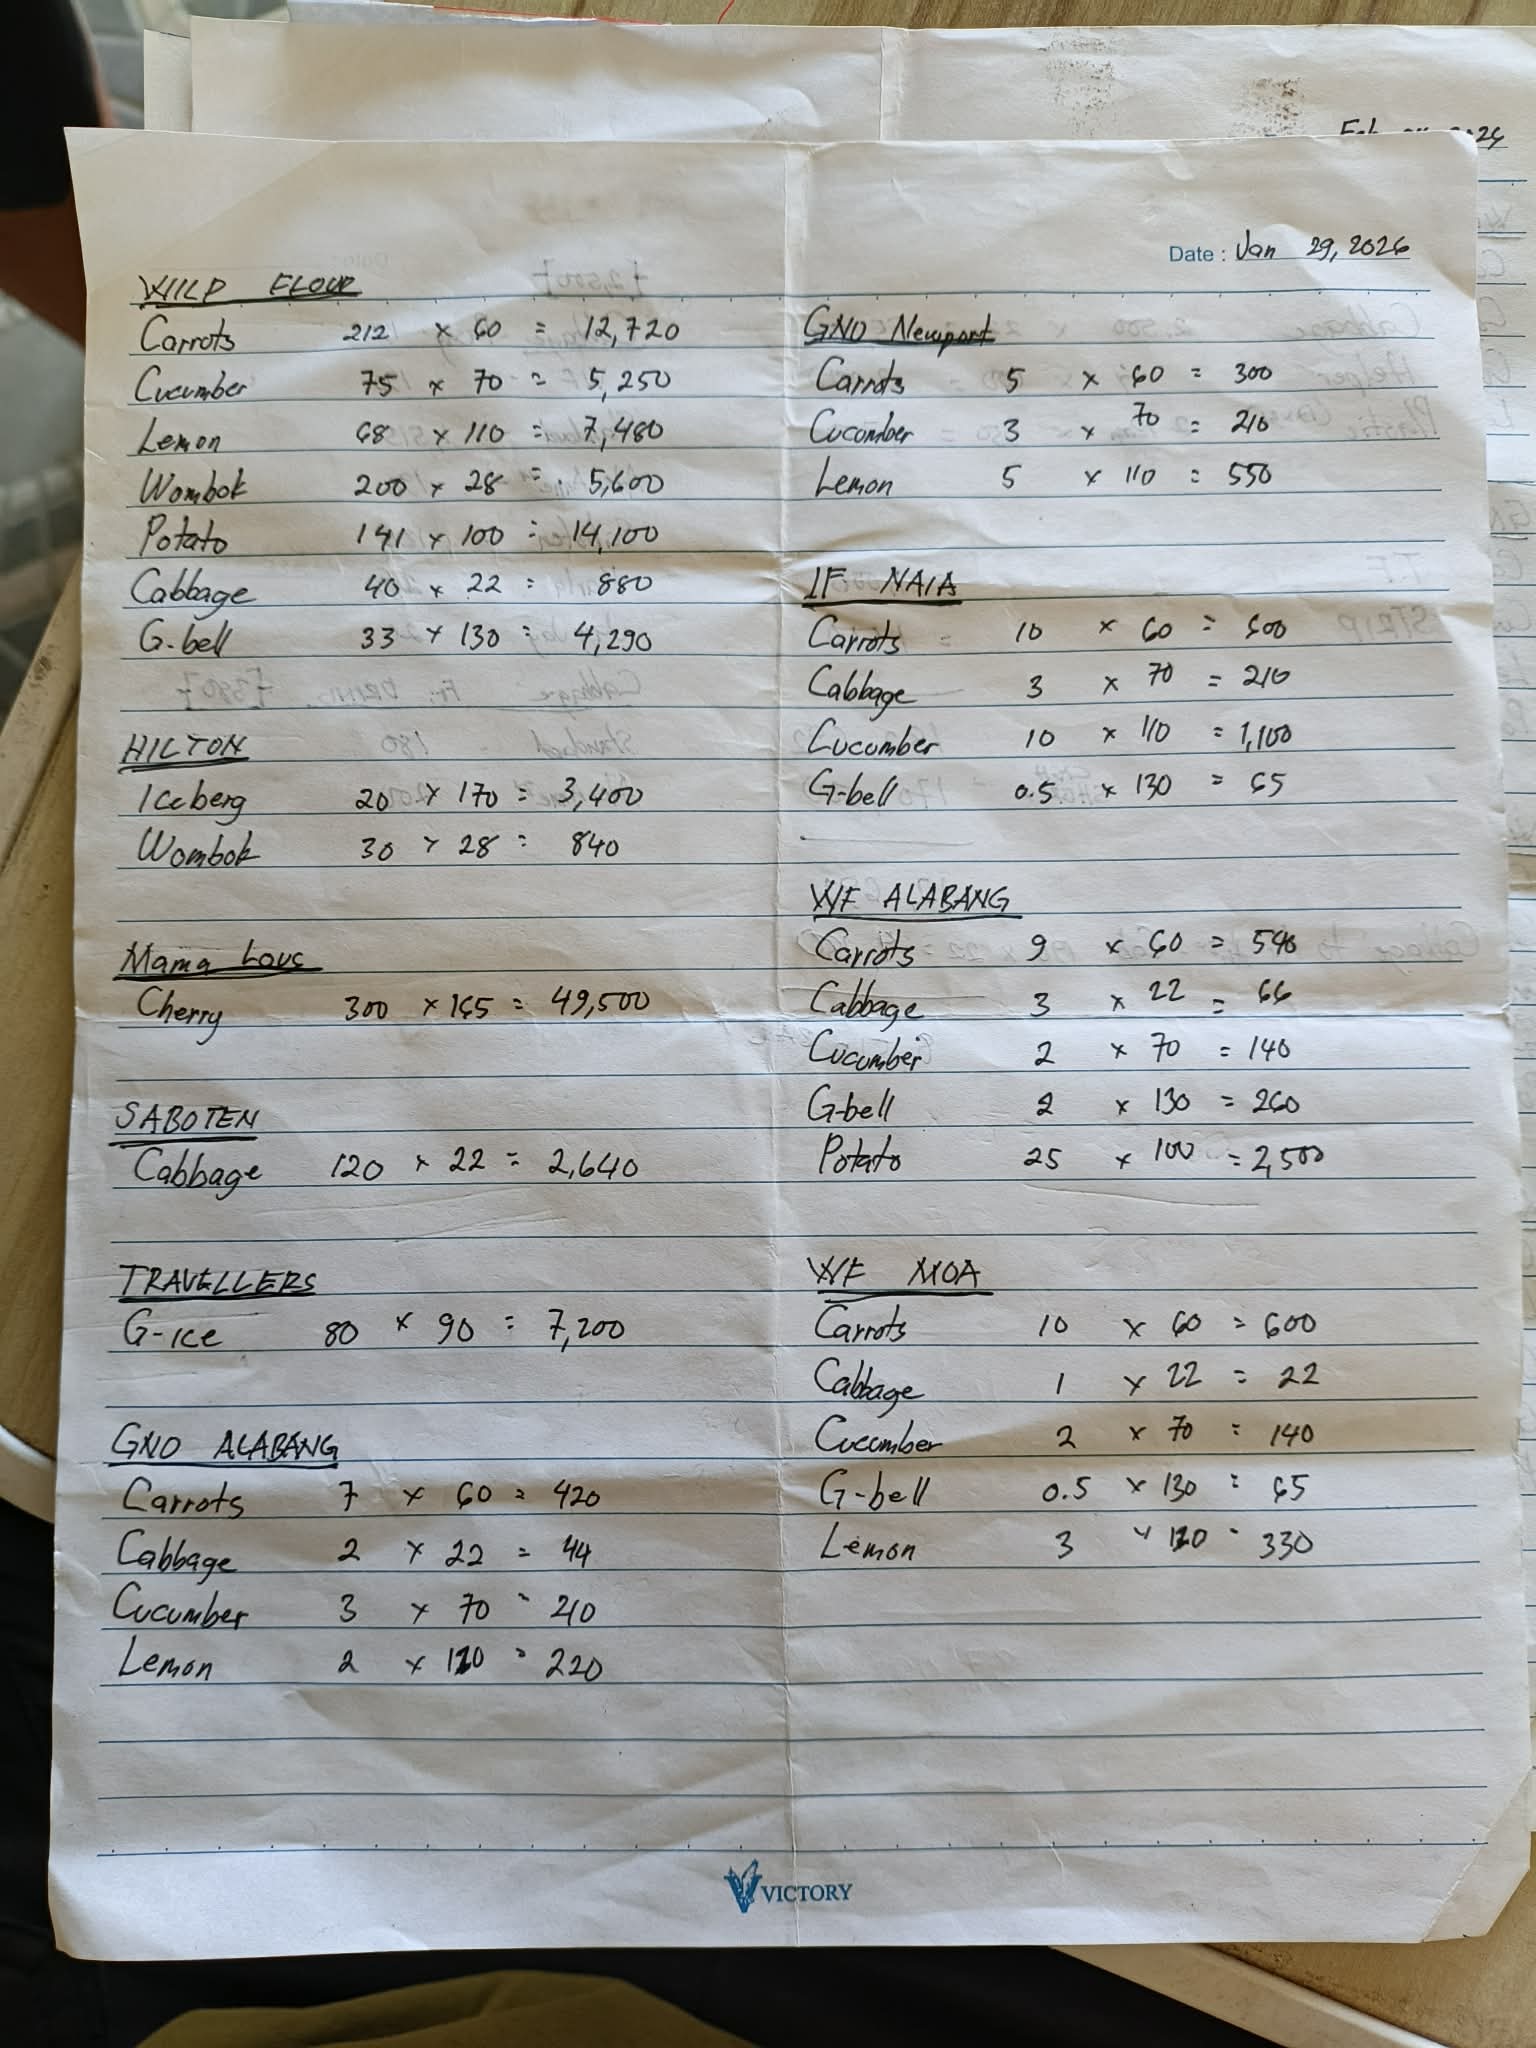 Date : Jan 29, 2026
WILD FLOUR
Carrots 212 x 60 = 12,720
Cucumber 75 x 70 = 5,250
Lemon 68 x 110 = 7,480
Wombok 200 x 28 = 5,600
Potato 141 x 100 = 14,100
Cabbage 40 x 22 = 880
G-bell 33 x 130 = 4,290
HILTON
Iceberg 20 x 170 = 3,400
Wombok 30 x 28 = 840
Mama Lous
Cherry 300 x 165 = 49,500
SABOTEN
Cabbage 120 x 22 = 2,640
TRAVELLERS
G-ice 80 x 90 = 7,200
GNO ALABANG
Carrots 7 x 60 = 420
Cabbage 2 x 22 = 44
Cucumber 3 x 70 = 210
Lemon 2 x 110 = 220
GNO Newport
Carrots 5 x 60 = 300
Cucumber 3 x 70 = 210
Lemon 5 x 110 = 550
IF NAIA
Carrots 10 x 60 = 600
Cabbage 3 x 70 = 210
Cucumber 10 x 110 = 1,100
G-bell 0.5 x 130 = 65
WF ALABANG
Carrots 9 x 60 = 540
Cabbage 3 x 22 = 66
Cucumber 2 x 70 = 140
G-bell 2 x 130 = 260
Potato 25 x 100 = 2,500
WF MOA
Carrots 10 x 60 = 600
Cabbage 1 x 22 = 22
Cucumber 2 x 70 = 140
G-bell 0.5 x 130 = 65
Lemon 3 x 110 = 330
VICTORY